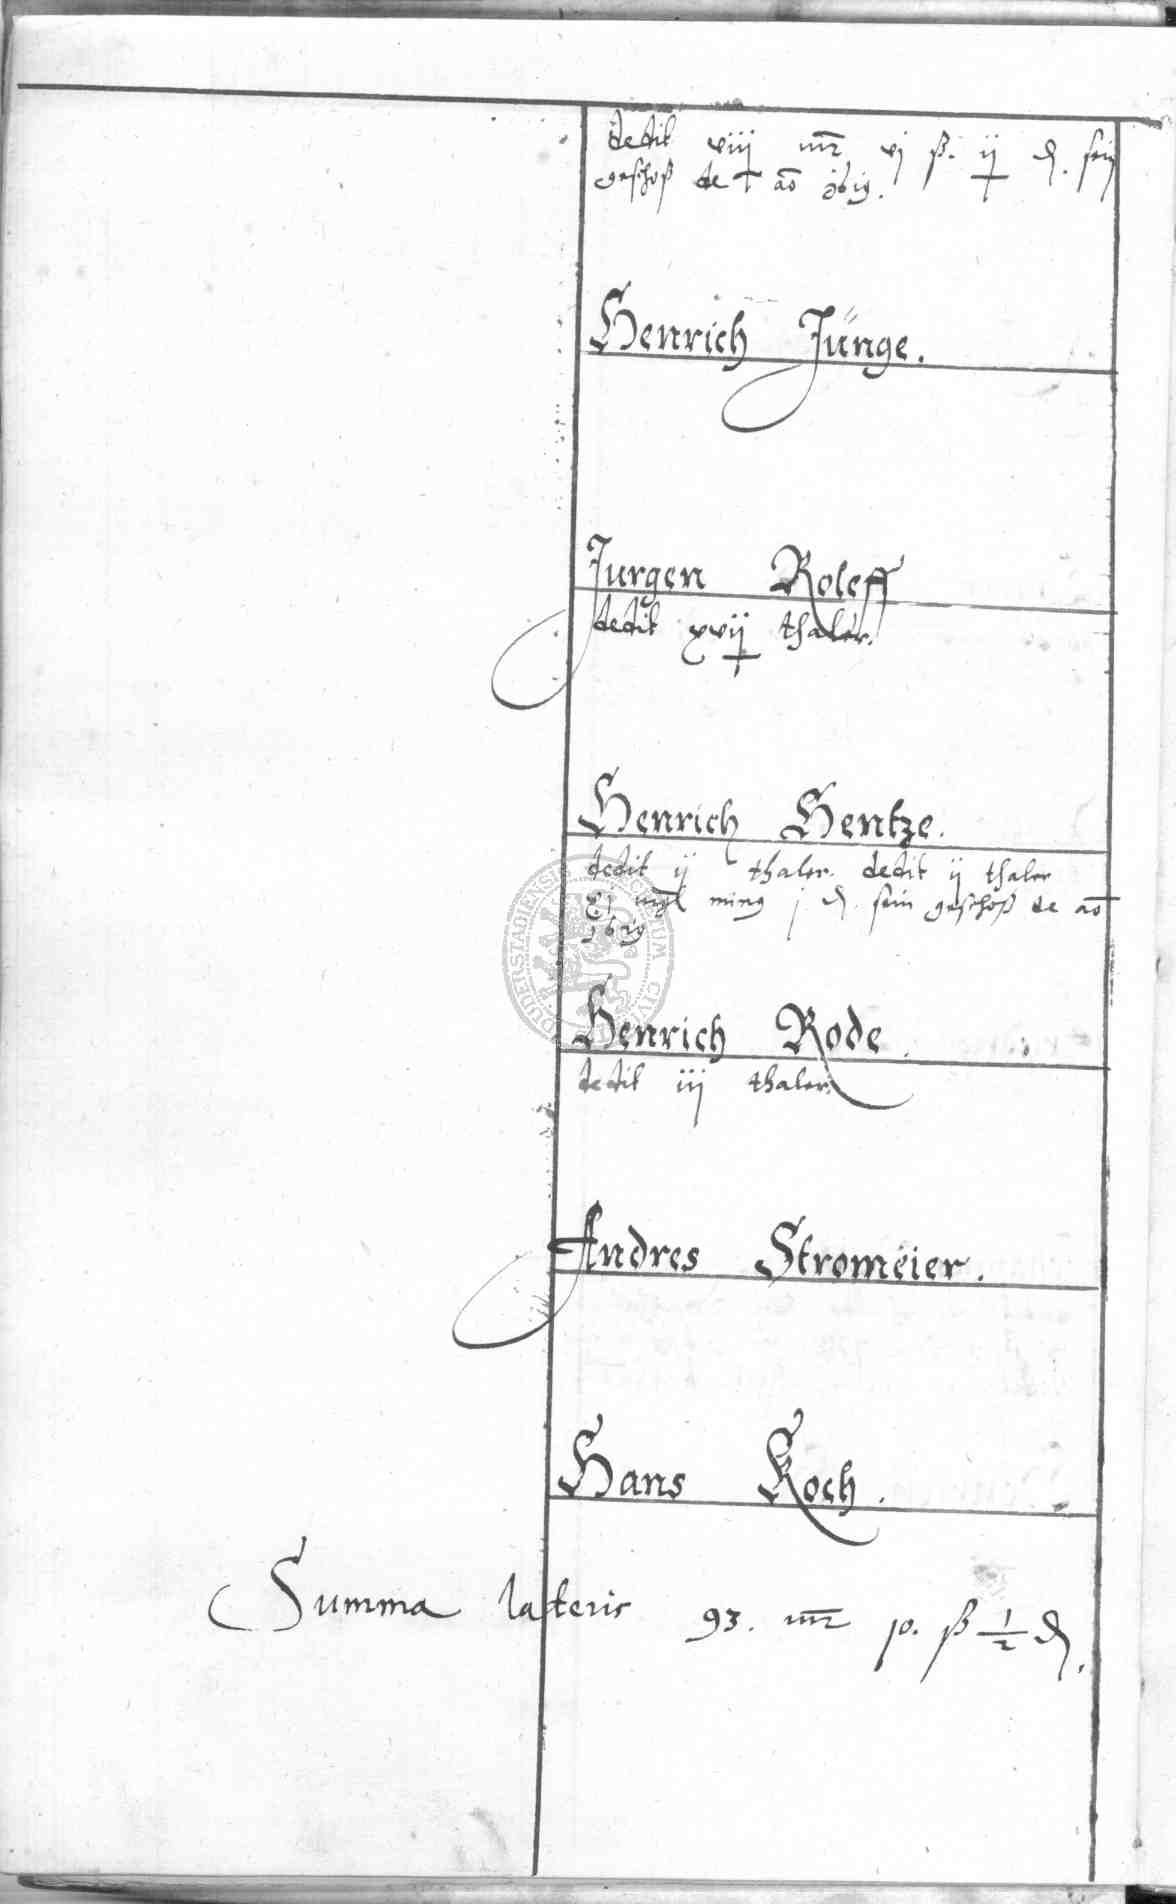 dedit viij mr vj ß. ij d. sein
geschoß de ao 1619.
Henrich Jünge.
Jurgen Roleff
dedit xvij thaler.
Henrich Hentze.
dedit ij thaler. dedit ij thaler
ming j d. sein geschoß de ao
1619
Henrich Rode.
dedit iij thaler.
Andres Stromeier.
Hans Koch.
Summa lateris 93. mr 10. ß 1/2 d.